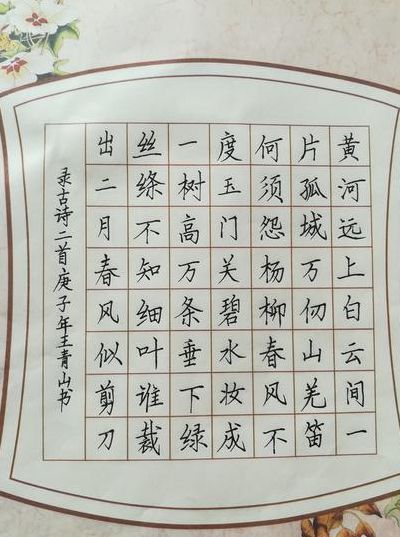 黄河远上白云间一
片孤城万仞山羌笛
何须怨杨柳春风不
度玉门关碧水妆成
一树高万条垂下绿
丝绦不知细叶谁裁
出二月春风似剪刀
录古诗二首庚子年王青山书